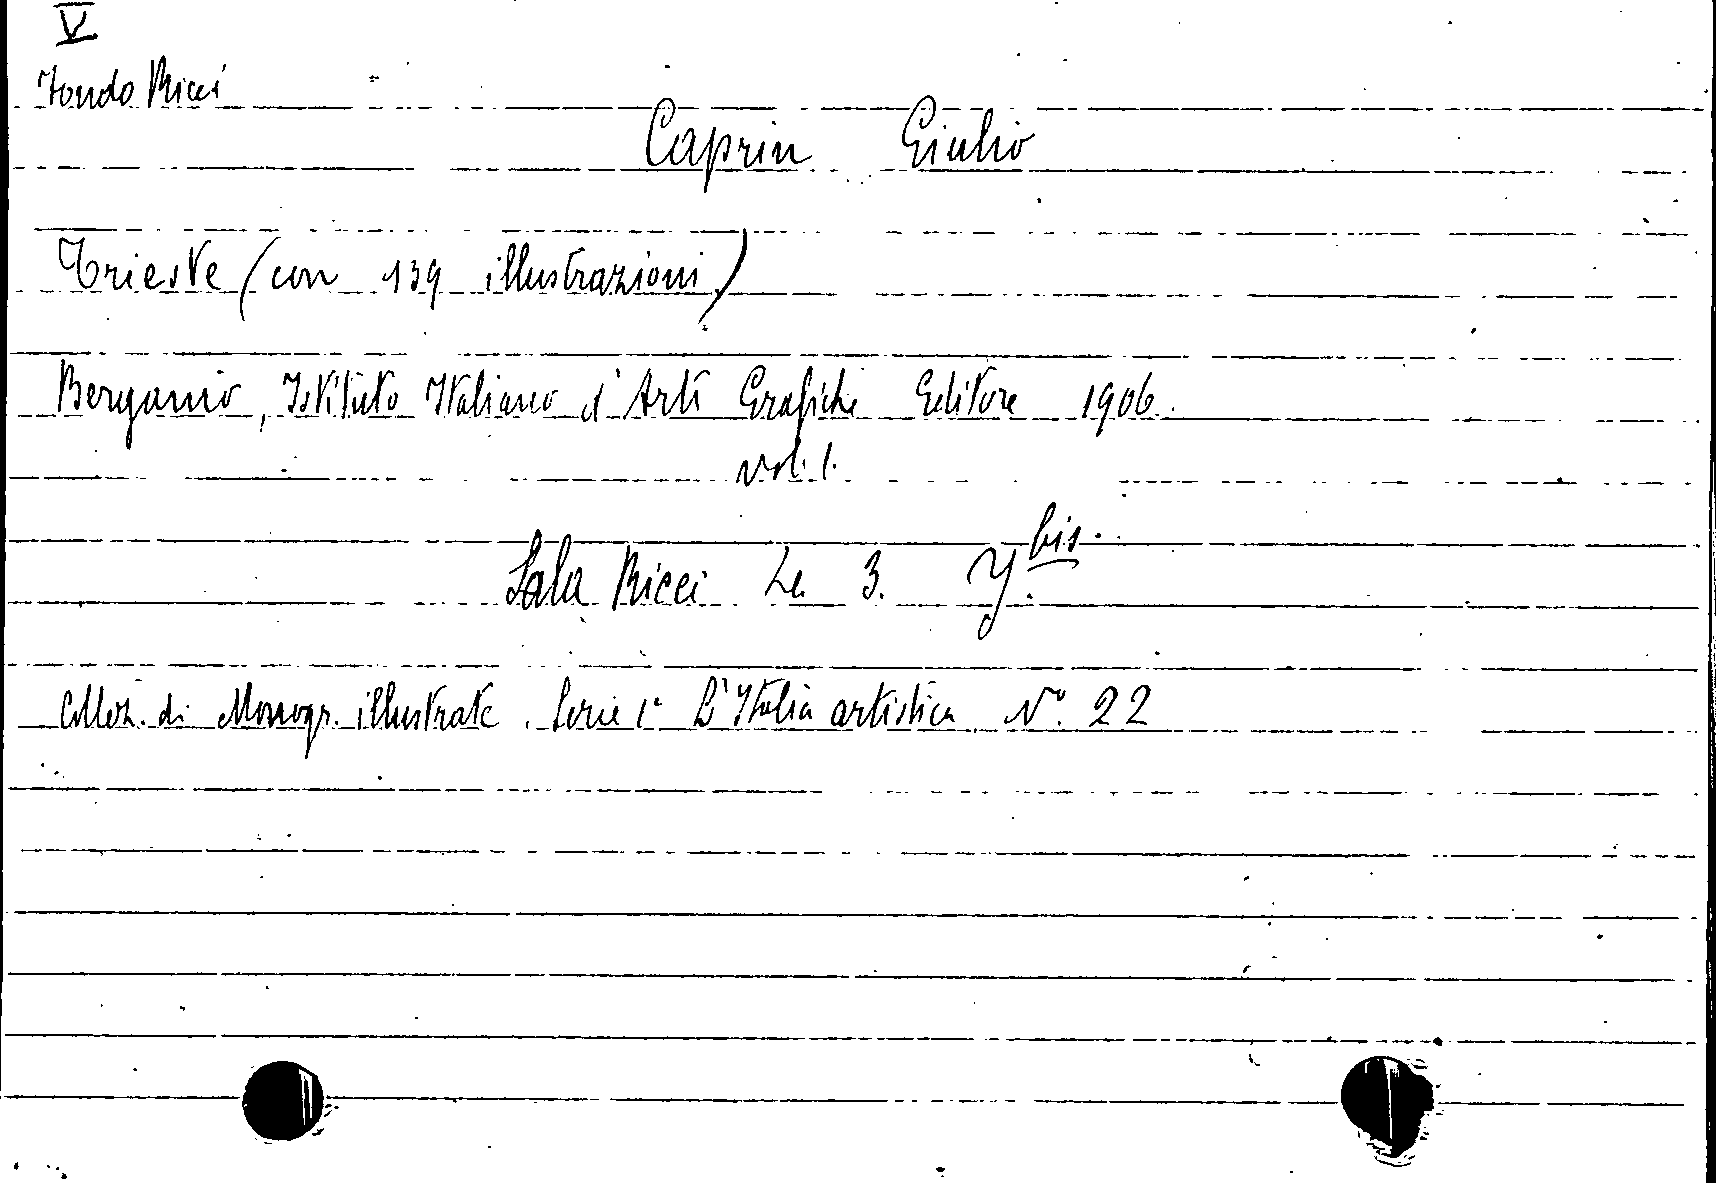 V
Fondo Ricci
Caprin Giulio
Trieste (con 139 illustrazioni)
Bergamo, Istituto Italiano d'Arti Grafiche Editore 1906.
vol. 1.
Sala Ricci 3. bis.
Collez. di Monogr. illustrate. Serie 1ª L'Italia artistica N.º 22